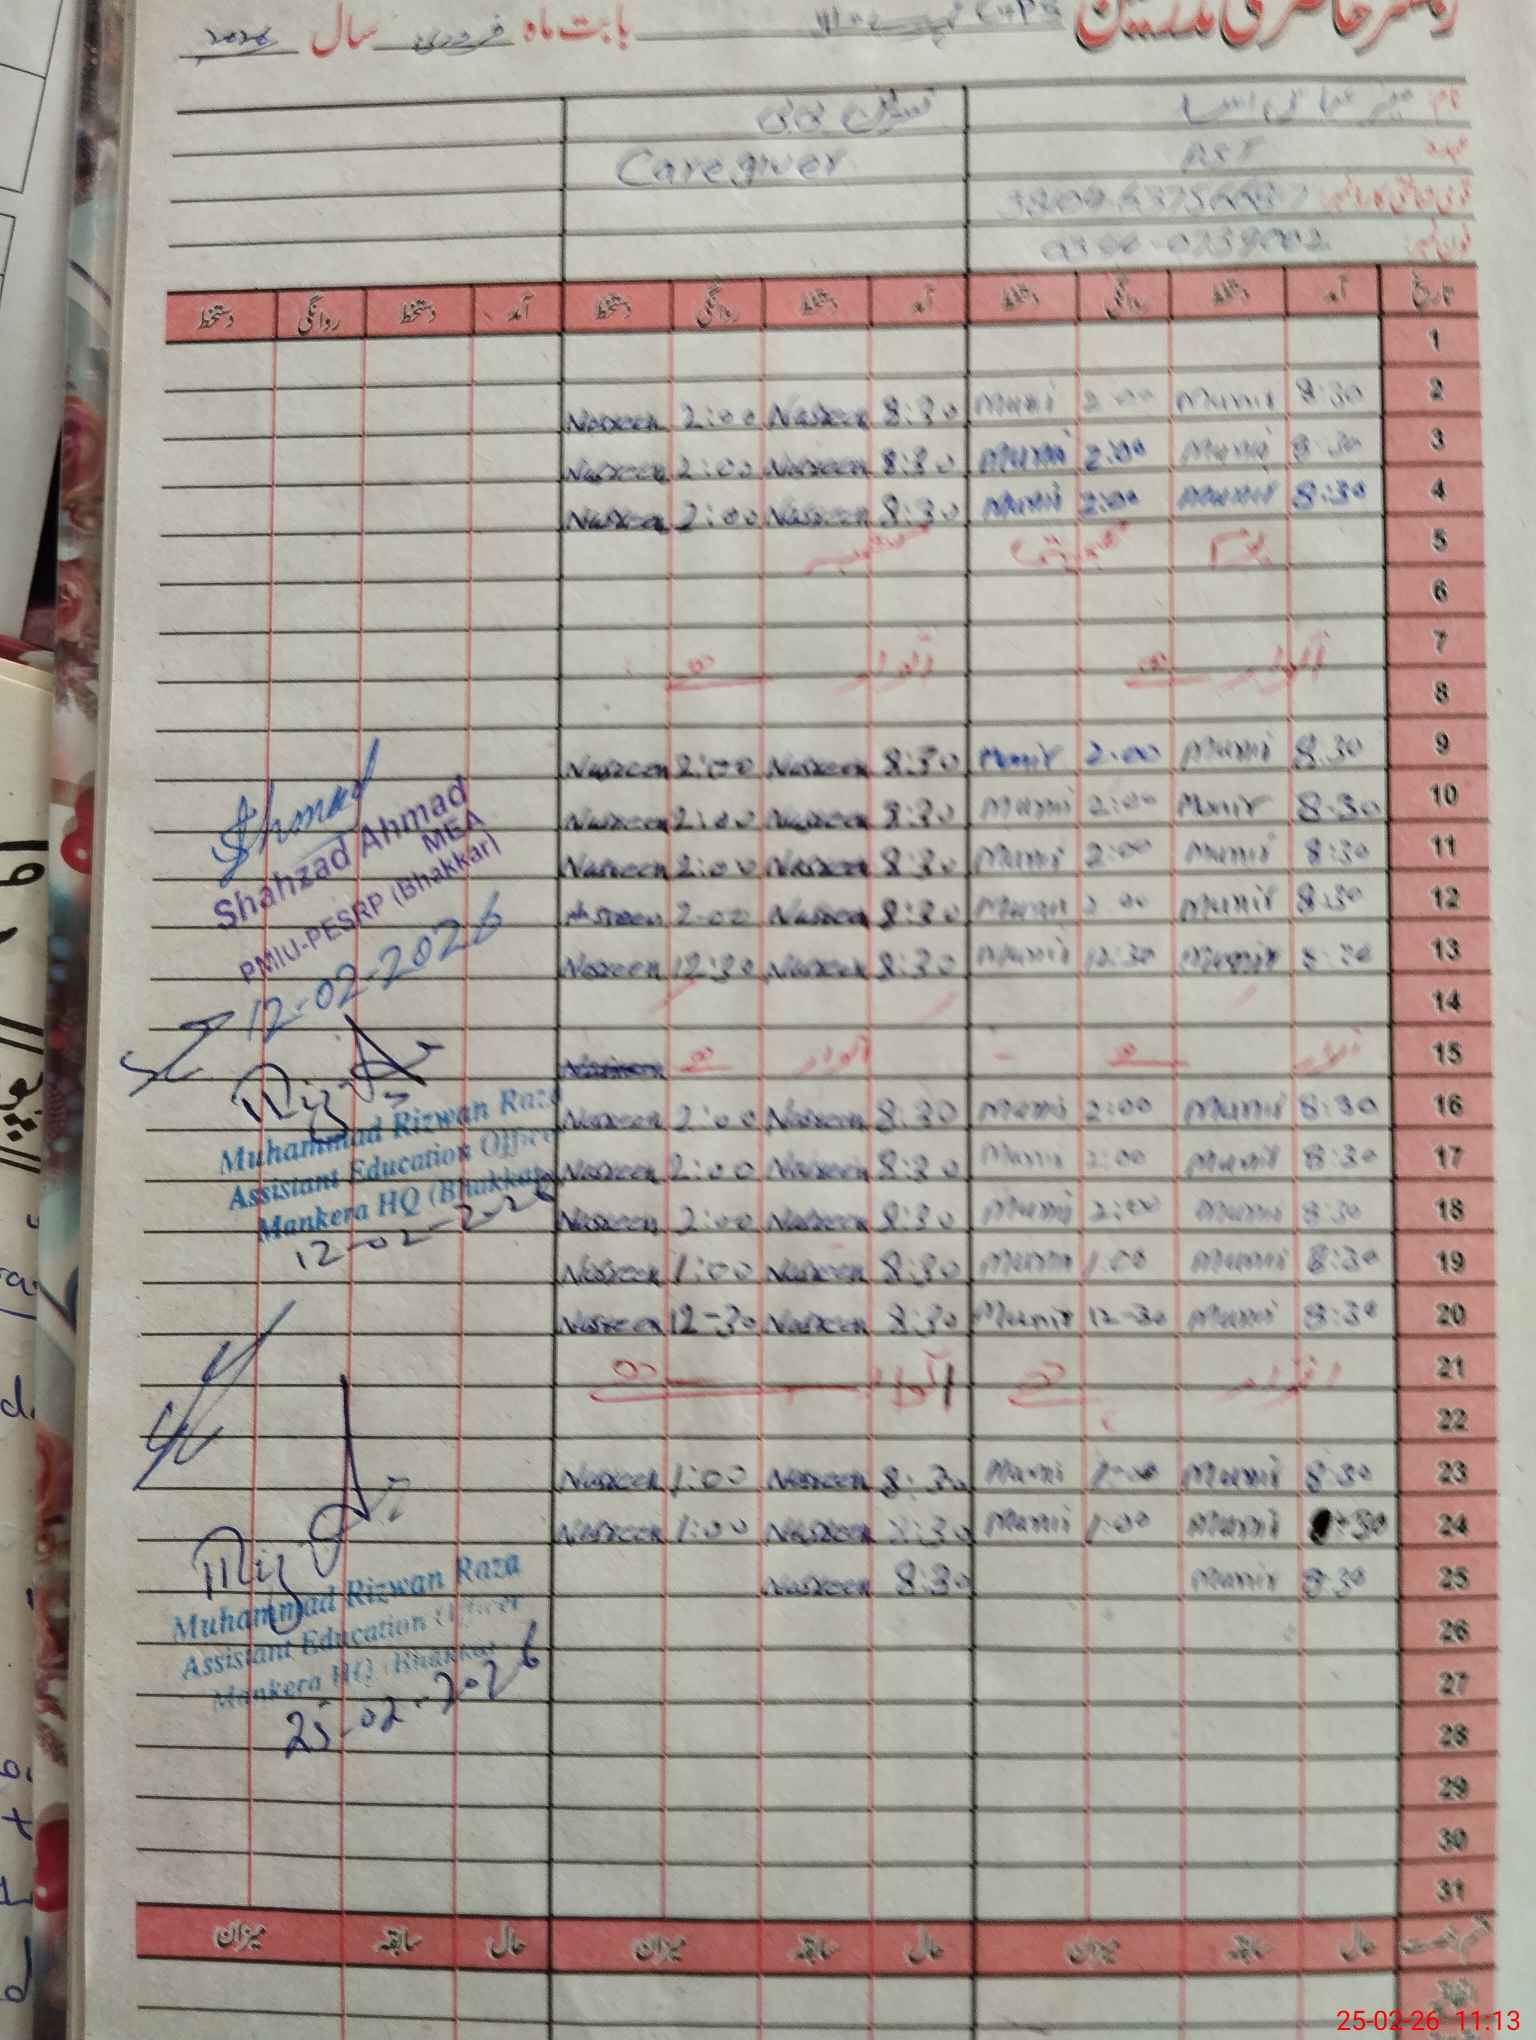 رجسٹر حاضری مدرسین بابت ماہ فروری سال 2026
نام
عہدہ PST Caregiver
فون نمبر
تاریخ آمد دستخط روانگی دستخط آمد دستخط روانگی دستخط آمد دستخط روانگی دستخط
1
2 8:30 Munir 2:00 Munir 8:30 Nasreen 2:00 Nasreen
3 8:30 Munir 2:00 Munir 8:30 Nasreen 2:00 Nasreen
4 8:30 Munir 2:00 Munir 8:30 Nasreen 2:00 Nasreen
5 یوم کشمیر
6
7
اتوار اتوار
8
9 8:30 Munir 2:00 Munir 8:30 Nasreen 2:00 Nasreen
10 8:30 Munir 2:00 Munir 8:30 Nasreen 2:00 Nasreen
11 8:30 Munir 2:00 Munir 8:30 Nasreen 2:00 Nasreen
12 8:30 Munir 2:00 Munir 8:30 Nasreen 2:00 Nasreen
13 8:30 Munir 12:30 Munir 8:30 Nasreen 12:30 Nasreen
14
15 اتوار اتوار
16 8:30 Munir 2:00 Munir 8:30 Nasreen 2:00 Nasreen
17 8:30 Munir 2:00 Munir 8:30 Nasreen 2:00 Nasreen
18 8:30 Munir 2:00 Munir 8:30 Nasreen 2:00 Nasreen
19 8:30 Munir 1:00 Munir 8:30 Nasreen 1:00 Nasreen
20 8:30 Munir 12-30 Munir 8:30 Nasreen 12-30 Nasreen
21 اتوار اتوار
22
23 8:30 Munir 1:00 Munir 8:30 Nasreen 1:00 Nasreen
24 8:30 Munir 1:00 Munir 8:30 Nasreen 1:00 Nasreen
25 8:30 Munir 8:30 Nasreen
26
27
28
29
30
31
حال سابقہ میزان حال سابقہ میزان حال سابقہ میزان
Ahmad
Shahzad Ahmad
MEA
PMIU-PESRP (Bhakkar)
12-02-2026
Muhammad Rizwan Raza
Assistant Education Officer
Mankera HQ (Bhakkar)
12-02-2026
Muhammad Rizwan Raza
Assistant Education Officer
Mankera HQ (Bhakkar)
25-02-2026
25-02-26 11:13